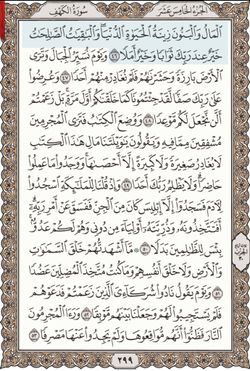 الجزء الخامس عشر
سورة الكهف
ٱلْمَالُ وَٱلْبَنُونَ زِينَةُ ٱلْحَيَوٰةِ ٱلدُّنْيَا ۖ وَٱلْبَٰقِيَٰتُ ٱلصَّٰلِحَٰتُ
خَيْرٌ عِندَ رَبِّكَ ثَوَابًا وَخَيْرٌ أَمَلًا ٤٦ وَيَوْمَ نُسَيِّرُ ٱلْجِبَالَ وَتَرَى
ٱلْأَرْضَ بَارِزَةً وَحَشَرْنَٰهُمْ فَلَمْ نُغَادِرْ مِنْهُمْ أَحَدًا ٤٧ وَعُرِضُوا۟
عَلَىٰ رَبِّكَ صَفًّا لَّقَدْ جِئْتُمُونَا كَمَا خَلَقْنَٰكُمْ أَوَّلَ مَرَّةٍۭ ۚ بَلْ زَعَمْتُمْ
أَلَّن نَّجْعَلَ لَكُم مَّوْعِدًا ٤٨ وَوُضِعَ ٱلْكِتَٰبُ فَتَرَى ٱلْمُجْرِمِينَ
مُشْفِقِينَ مِمَّا فِيهِ وَيَقُولُونَ يَٰوَيْلَتَنَا مَالِ هَٰذَا ٱلْكِتَٰبِ
لَا يُغَادِرُ صَغِيرَةً وَلَا كَبِيرَةً إِلَّآ أَحْصَىٰهَا ۚ وَوَجَدُوا۟ مَا عَمِلُوا۟
حَاضِرًا ۗ وَلَا يَظْلِمُ رَبُّكَ أَحَدًا ٤٩ وَإِذْ قُلْنَا لِلْمَلَٰٓئِكَةِ ٱسْجُدُوا۟
لِءَادَمَ فَسَجَدُوٓا۟ إِلَّآ إِبْلِيسَ كَانَ مِنَ ٱلْجِنِّ فَفَسَقَ عَنْ أَمْرِ رَبِّهِۦٓ ۗ
أَفَتَتَّخِذُونَهُۥ وَذُرِّيَّتَهُۥٓ أَوْلِيَآءَ مِن دُونِى وَهُمْ لَكُمْ عَدُوٌّۢ ۚ
بِئْسَ لِلظَّٰلِمِينَ بَدَلًا ٥٠ مَّآ أَشْهَدتُّهُمْ خَلْقَ ٱلسَّمَٰوَٰتِ
وَٱلْأَرْضِ وَلَا خَلْقَ أَنفُسِهِمْ وَمَا كُنتُ مُتَّخِذَ ٱلْمُضِلِّينَ عَضُدًا
٥١ وَيَوْمَ يَقُولُ نَادُوا۟ شُرَكَآءِىَ ٱلَّذِينَ زَعَمْتُمْ فَدَعَوْهُمْ
فَلَمْ يَسْتَجِيبُوا۟ لَهُمْ وَجَعَلْنَا بَيْنَهُم مَّوْبِقًا ٥٢ وَرَءَا ٱلْمُجْرِمُونَ
ٱلنَّارَ فَظَنُّوٓا۟ أَنَّهُم مُّوَاقِعُوهَا وَلَمْ يَجِدُوا۟ عَنْهَا مَصْرِفًا ٥٣
٢٩٩